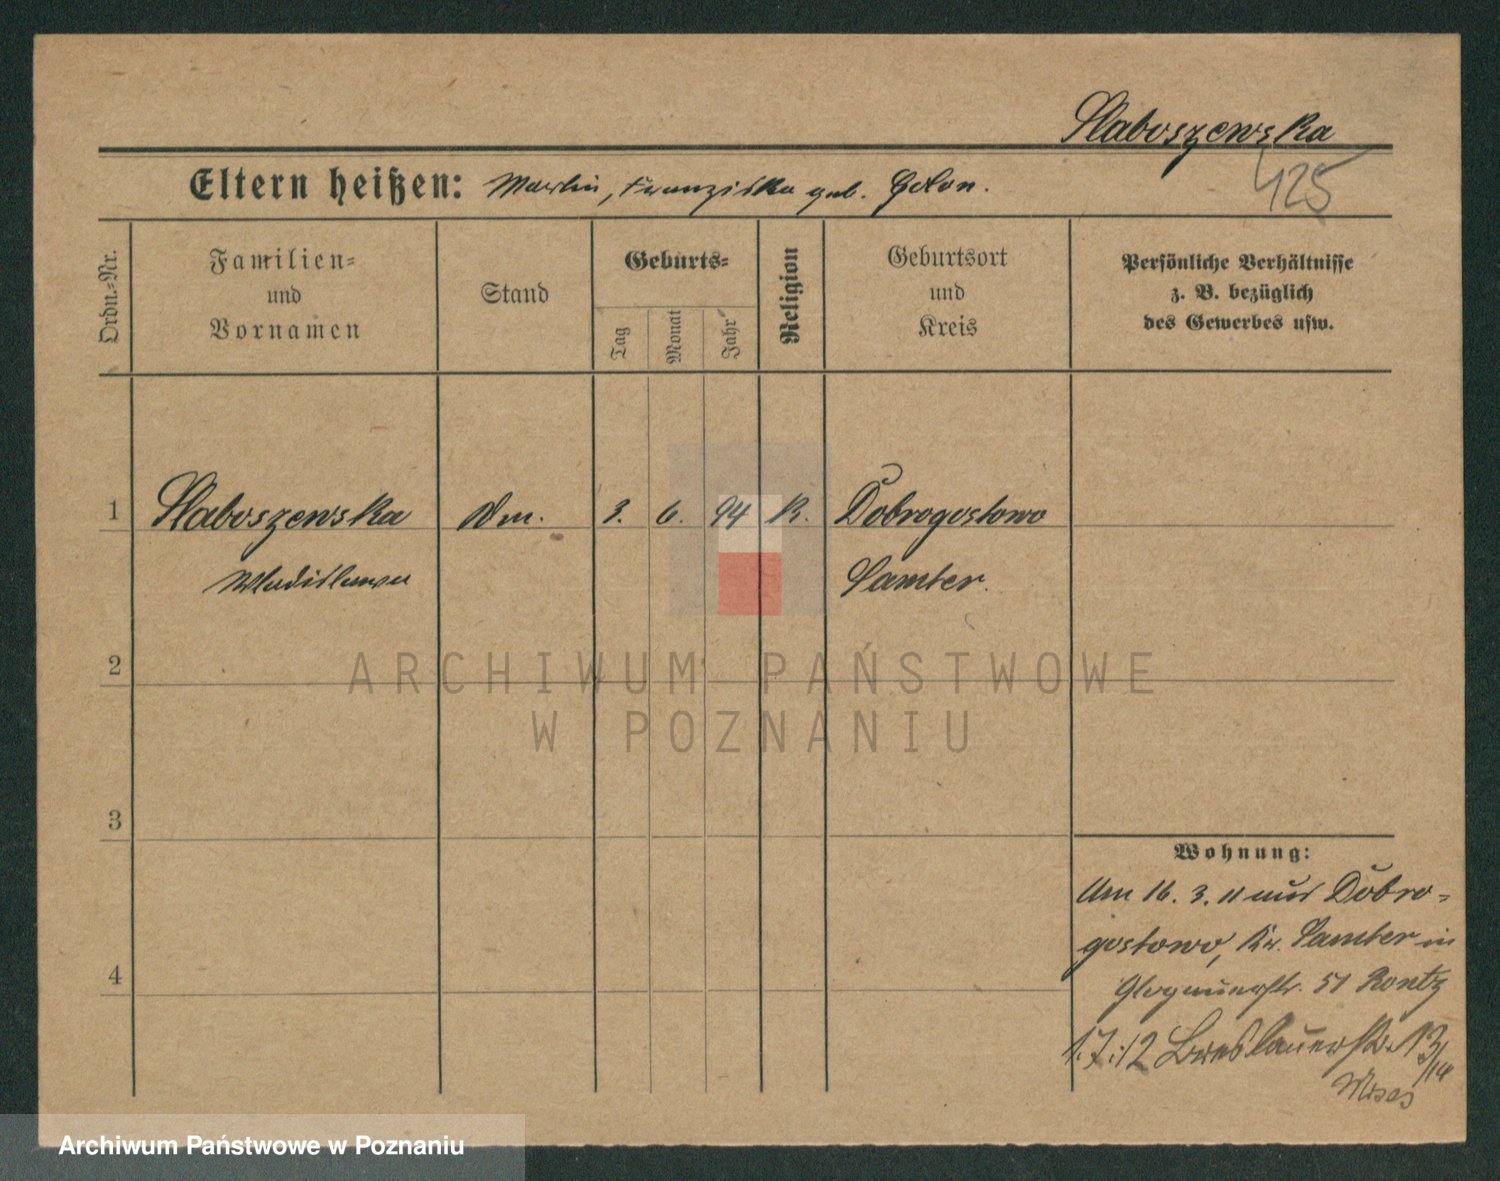 Slaboszewska
425
Eltern heißen: Martin, Franziska geb. Golon.
Ordn.-Nr.
Familien-
und
Vornamen
Stand
Geburts-
Tag
Monat
Jahr
Religion
Geburtsort
und
Kreis
Persönliche Verhältnisse
z. B. bezüglich
des Gewerbes usw.
1 Slaboszewska Dm. 3. 6. 94 K. Dobrogostowo
Wladislawa Samter.
2
ARCHIWUM PAŃSTWOWE
W POZNANIU
3
Wohnung:
Am 16. 3. 11 aus Dobro-
gostowo, Kr. Samter in
4
Glogauerstr. 51 Rontz
1.7.12 Breslauerstr. 13/14
Moses
Archiwum Państwowe w Poznaniu